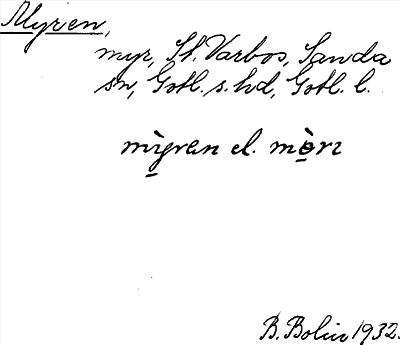 Myren,
myr, St. Varbos, Sanda
sn, Gotl. s. hd, Gotl. l.
mỳren el. 
B. Bolin 1932.